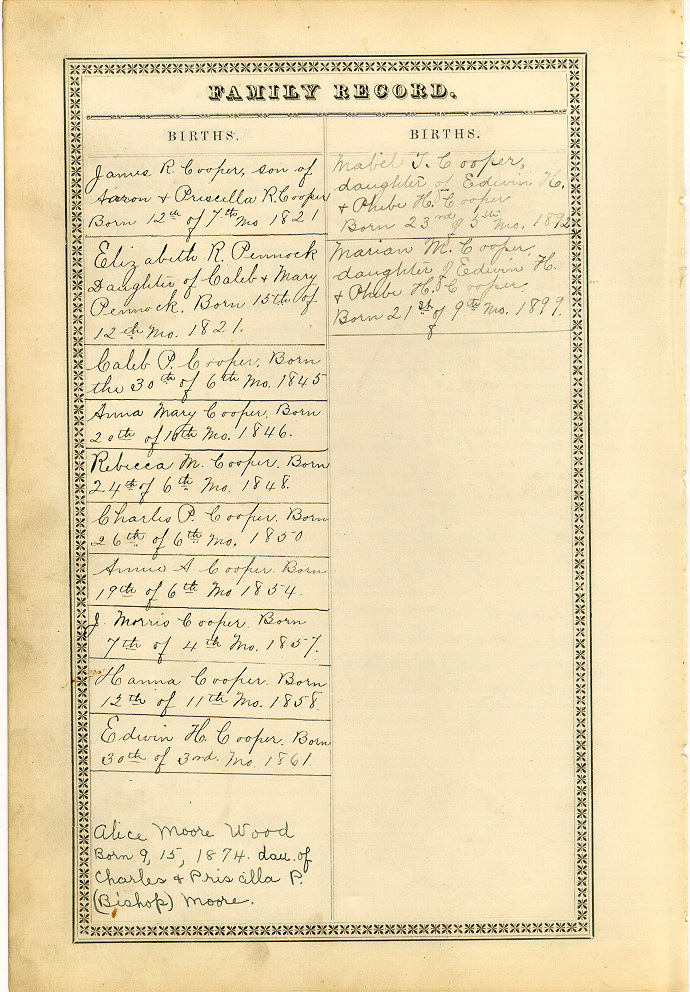 FAMILY RECORD.
BIRTHS.
James R. Cooper, son of
Aaron & Priscilla R. Cooper
Born 12th of 7th Mo 1821
Elizabeth R. Pennock
Daughter of Caleb & Mary
Pennock. Born 15th of
12th Mo. 1821.
Caleb P. Cooper. Born
the 30th of 6th Mo. 1845
Anna Mary Cooper. Born
20th of 10th Mo. 1846.
Rebecca M. Cooper. Born
24th of 6th Mo. 1848.
Charles P. Cooper. Born
26th of 6th Mo. 1850
Annie A. Cooper. Born
19th of 6th Mo 1854.
J. Morris Cooper. Born
7th of 4th Mo. 1857.
Hanna Cooper. Born
12th of 11th Mo. 1858.
Edwin H. Cooper. Born
30th of 3rd. Mo. 1861
Alice Moore Wood
Born 9, 15, 1874. dau. of
Charles & Priscilla P.
(Bishop) Moore.
BIRTHS.
Mabel T. Cooper,
daughter of Edwin H.
& Phebe H. S. Cooper
Born 23nd of 5th Mo. 1892
Marian M. Cooper,
daughter of Edwin H.
& Phebe H. S. Cooper
Born 21st of 9th Mo. 1899.